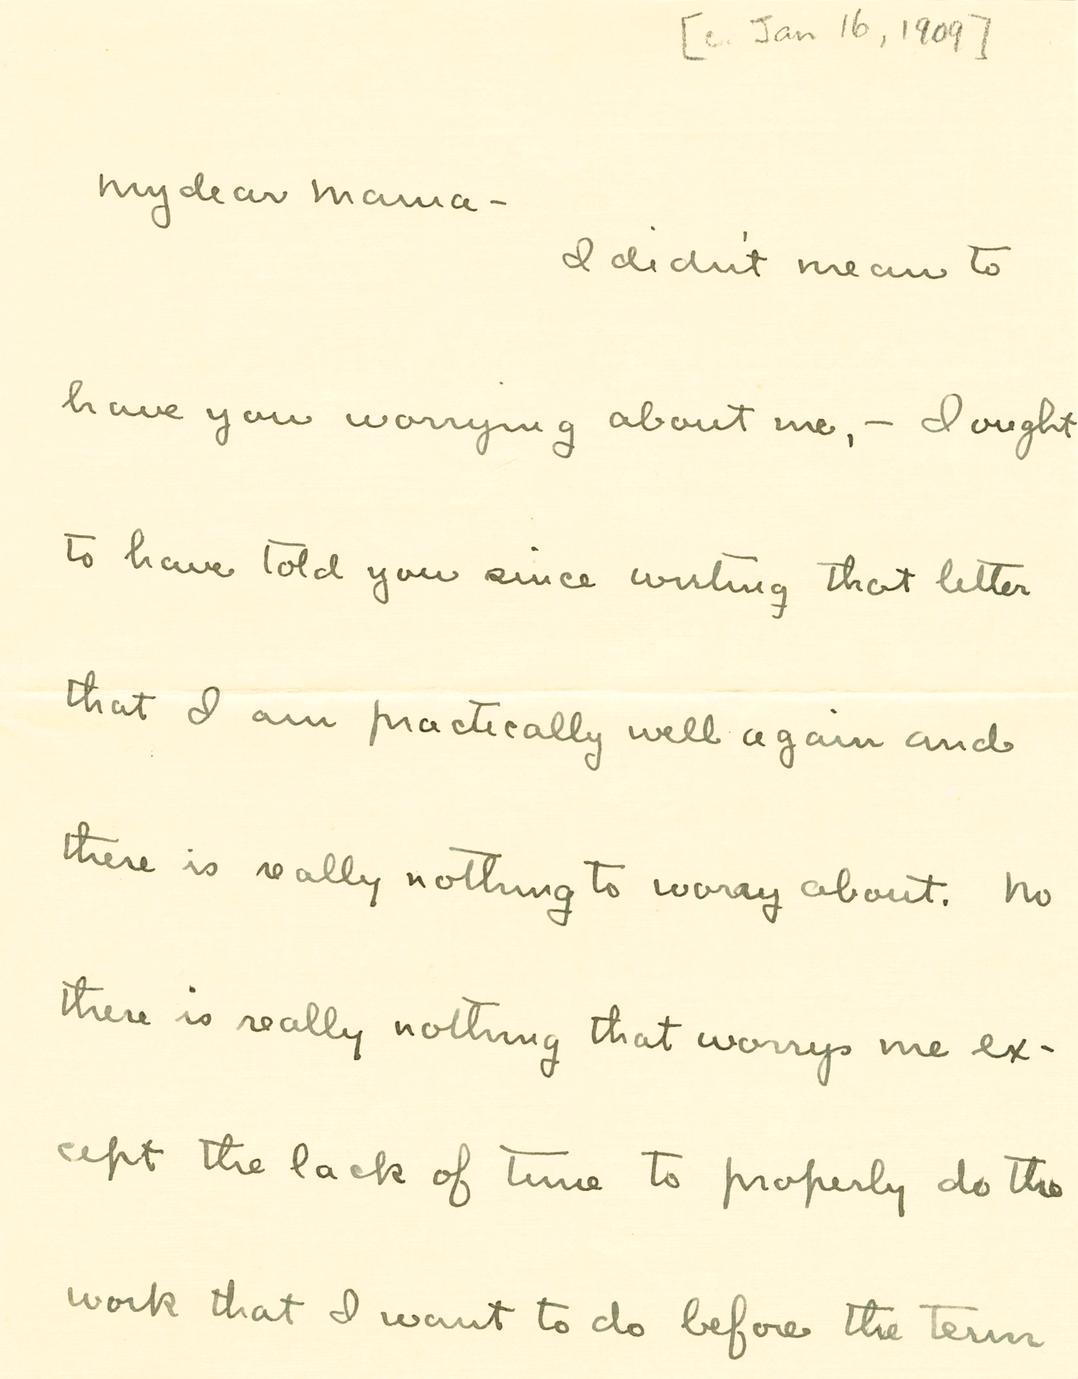 [c. Jan 16, 1909]
My dear Mama -
I didn't mean to
have you worrying about me, - I ought
to have told you since writing that letter
that I am practically well again and
there is really nothing to worry about. No
there is really nothing that worrys me ex-
cept the lack of time to properly do the
work that I want to do before the term